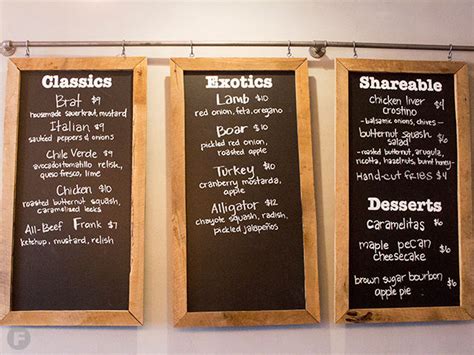 Classics
Brat $9
housemade sauerkraut, mustard
Italian $9
sautéed peppers & onions
Chile Verde $9
avocado tomatillo relish,
queso fresco, lime
Chicken $10
roasted butternut squash,
caramelized leeks
All-Beef Frank $7
ketchup, mustard, relish
Exotics
Lamb $10
red onion, feta, oregano
Boar $10
pickled red onion,
roasted apple
Turkey $10
cranberry mostarda,
apple
Alligator $12
chayote squash, radish,
pickled jalapeños
Shareable
chicken liver $4
crostino
- balsamic onions, chives -
butternut squash $8
salad
- roasted butternut, arugula,
ricotta, hazelnuts, burnt honey -
Hand-cut fries $4
Desserts
caramelitas $4
maple pecan $6
cheesecake
brown sugar bourbon $6
apple pie
F